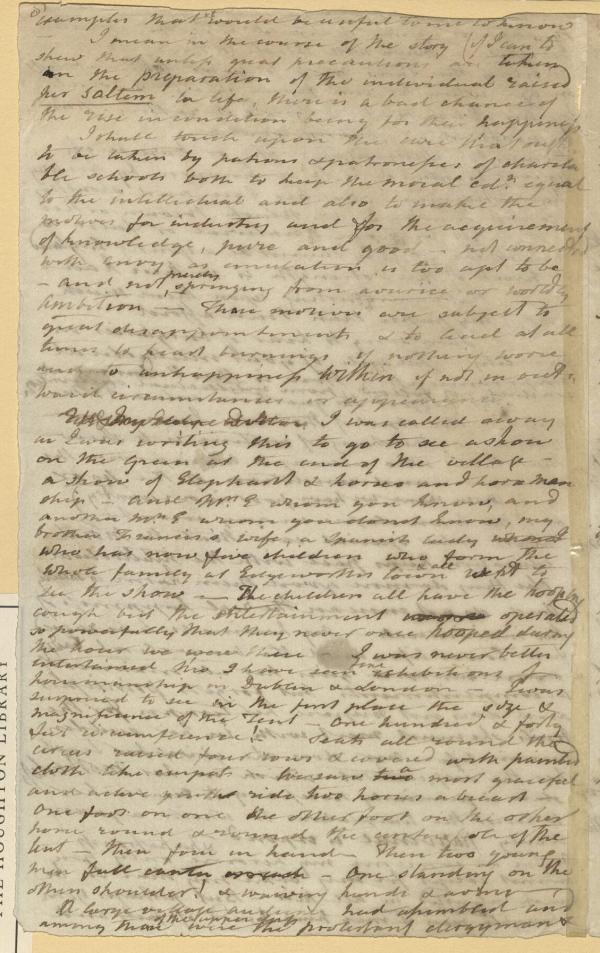 examples that would be useful to me to know
— I mean in the course of the story (if I can to
shew that unless great precautions are taken
in the preparation of the individual raised
per saltem in life, there is a bad chance of
the rise in condition being for their happiness
I shall touch upon the care that ought
to be taken by patrons & patronesses of charita
ble schools both to keep the moral edn equal
to the intellectual and also to make the
motives for industry and for the acquirement
of knowledge, pure and good — not connected
with envy as emulation is too apt to be
— and not merely springing from avarice or worldly
ambition — These motives are subject to
great disappointments & to lead at all
times to heart burnings if nothing worse
and to unhappiness within if not in out-
ward circumstances or appearance
I was called away
as I was writing this to go to see a show
on the Green at the end of the village —
a show of Elephant & horses and horseman
ship — and Mrs E whom you know, and
another Mrs E whom you do not know, my
brother Francis's wife, a Spanish lady
who has now five children who form the
whole family at Edgeworths town all went to
see the show — The children all have the hooping
cough but the entertainment operated
so powerfully that they never once hooped during
the hour we were there — I was never better
entertained tho I have seen fine exhibitions of
horsemanship in Dublin & London — I was
surprised to see in the first place the size &
magnificence of the Tent — One hundred & forty
feet circumference! — Seats all round the
circus raised four rows & covered with painted
cloth like carpet — We saw two most graceful
and active youths ride two horses abreast —
One foot on one the other foot on the other
horse round & round the center pole of the
tent — then four in hand — Then two young
men full canter — One standing on the
others shoulder! & waiving hands & arms —
A large village audience had assembled and
among these of the upper were the protestant clergyman &
THE HOUGHTON LIBRARY